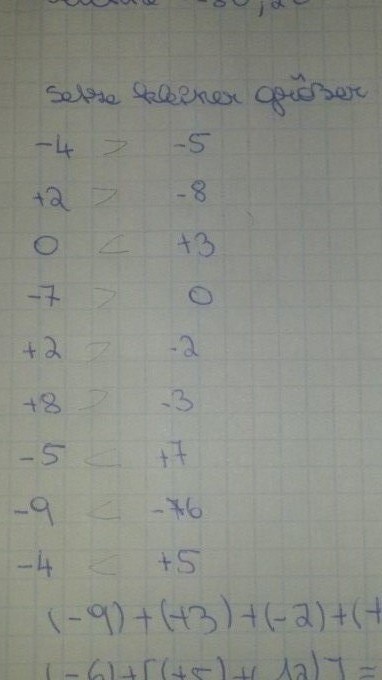 Setze kleiner größer
-4 > -5
+2 > -8
0 < +3
-7 > 0
+2 > -2
+8 > -3
-5 < +7
-9 < -76
-4 < +5
(-9)+(+3)+(-2)+(+